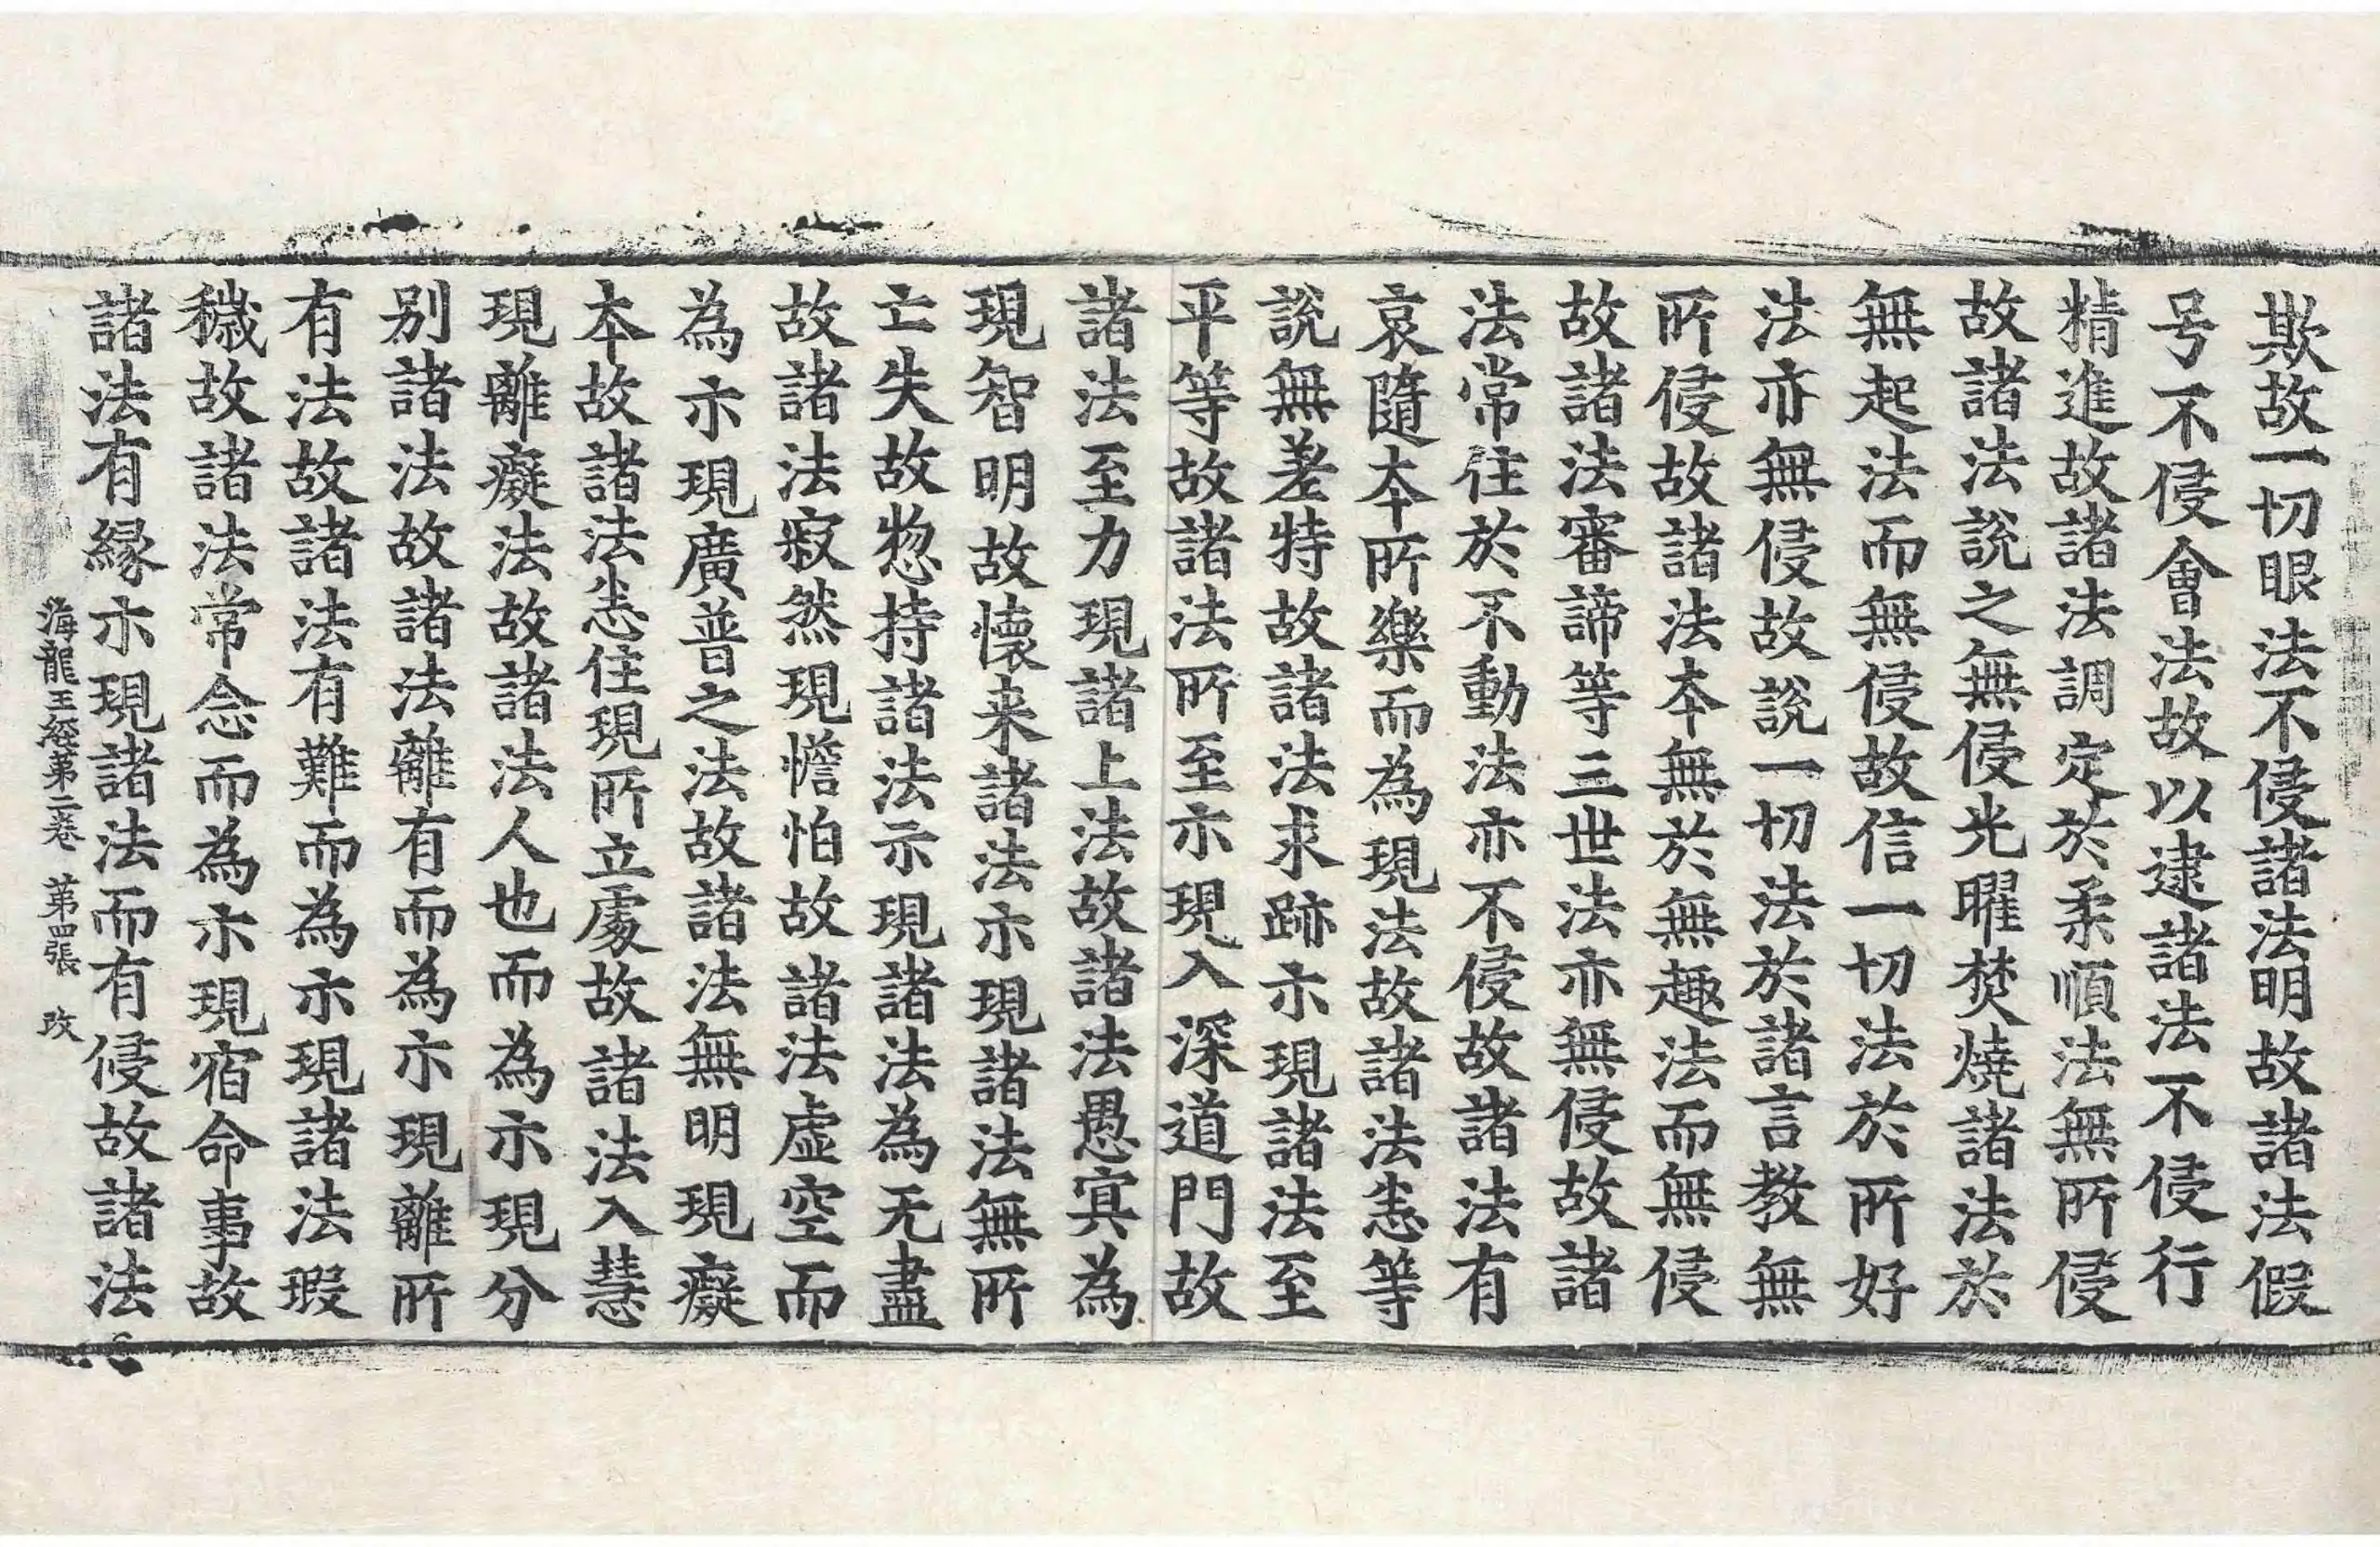 欺故一切眼法不侵諸法明故諸法假
号不侵會法故以逮諸法不侵行
精進故諸法調定於柔順法無所侵
故諸法說之無侵光曜焚燒諸法於
無起法而無侵故信一切法於所好
法亦無侵故說一切法於諸言教無
所侵故諸法夲無於無趣法而無侵
故諸法審諦等三世法亦無侵故諸
法常住於不動法亦不侵故諸法有
哀隨夲所樂而為現法故諸法恙等
說無差特故諸法求跡示現諸法至
平等故諸法所至示現入深道門故
諸法至力現諸上法故諸法愚冥為
現智明故懷来諸法示現諸法無所
亡失故惣持諸法示現諸法為无盡
故諸法寂然現憺怕故諸法虛空而
為示現廣普之法故諸法無明現癡
夲故諸法恙住現所立處故諸法入慧
現離癡法故諸法人也而為示現分
别諸法故諸法離有而為示現離所
有法故諸法有難而為示現諸法瑕
穢故諸法常念而為示現宿命事故
諸法有緣示現諸法而有侵故諸法
海龍王經第二卷 第四張 改